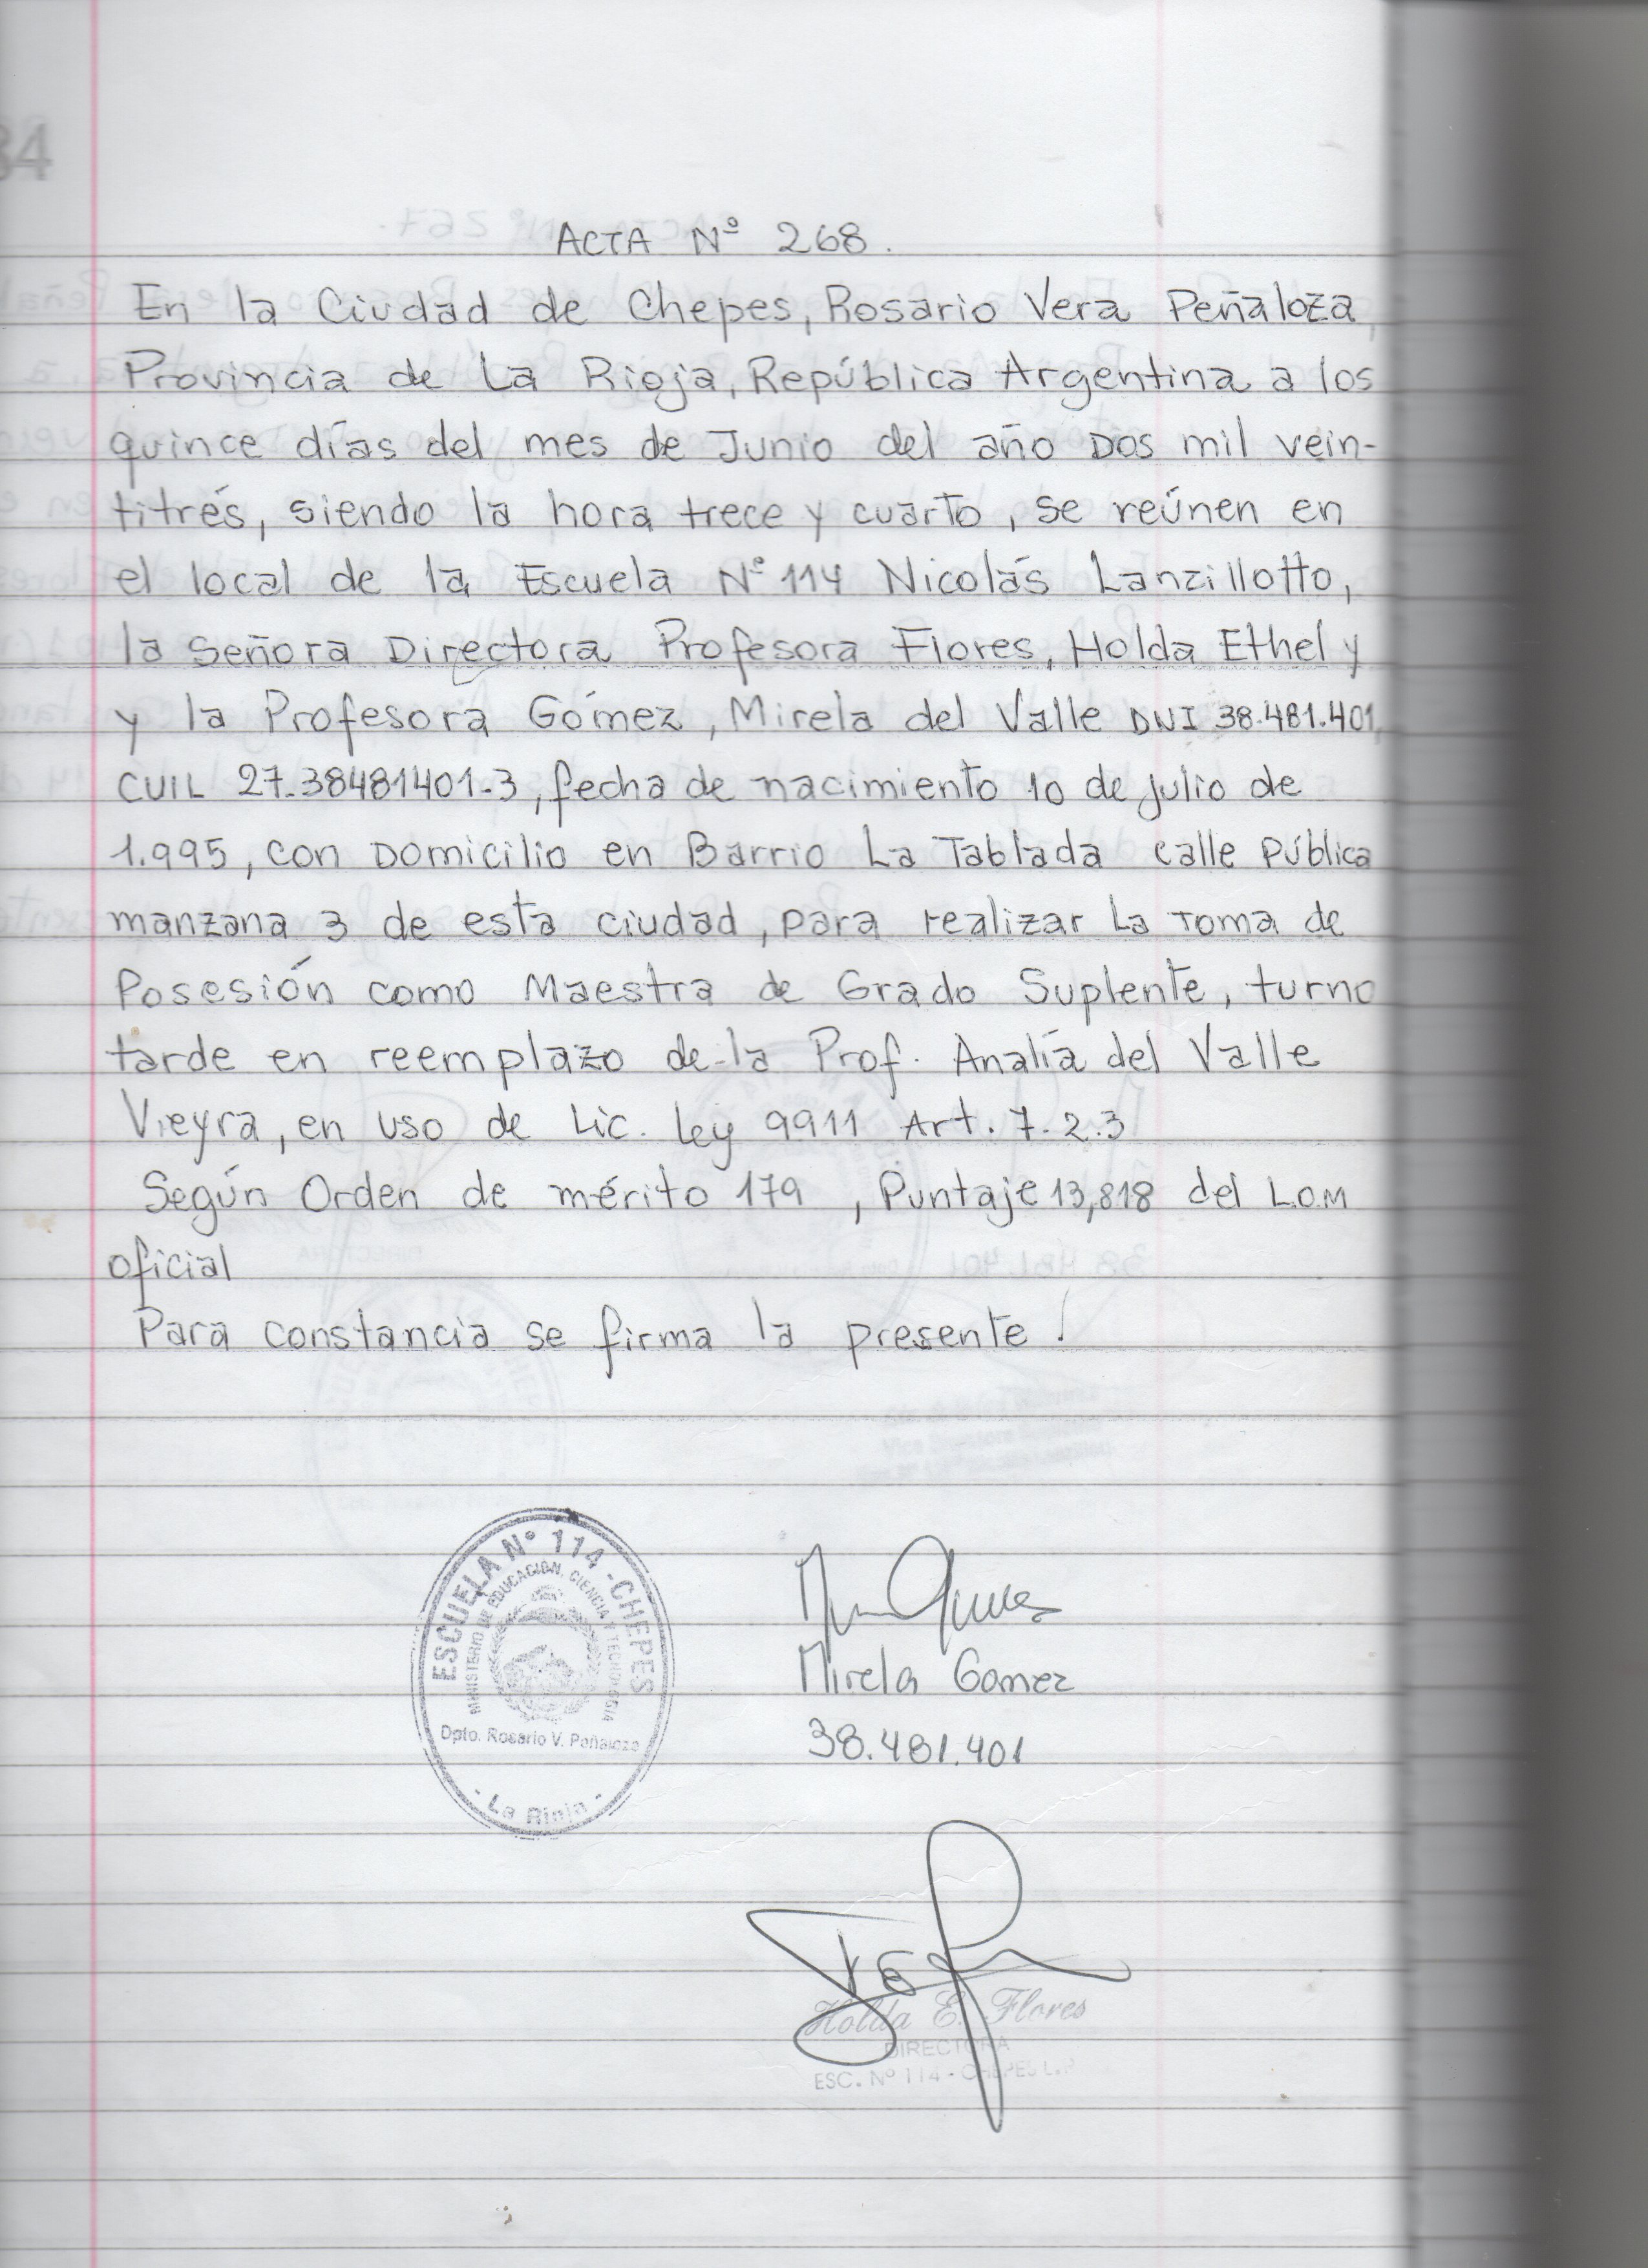 84
ACTA Nº 268.
En la Ciudad de Chepes, Rosario Vera Peñaloza,
Provincia de La Rioja, República Argentina a los
quince días del mes de Junio del año Dos mil vein-
titrés, siendo la hora trece y cuarto, se reúnen en
el local de la Escuela Nº 114 Nicolás Lanzillotto,
la Señora Directora Profesora Flores, Holda Ethel y
y la Profesora Gómez, Mirela del Valle DNI 38.481.401,
CUIL 27-38481401-3, fecha de nacimiento 10 de julio de
1.995, con Domicilio en Barrio La Tablada calle Pública
manzana 3 de esta ciudad, para realizar La Toma de
Posesión como Maestra de Grado Suplente, turno
tarde en reemplazo de la Prof. Analía del Valle
Vieyra, en uso de Lic. Ley 9911 Art. 7.2.3
Según Orden de mérito 179, Puntaje 13,818 del L.O.M
oficial
Para constancia se firma la presente!
ESCUELA Nº 114 - CHEPES
MINISTERIO DE EDUCACIÓN, CIENCIA Y TECNOLOGIA
Dpto. Rosario V. Peñaloza
- La Rioja -
Mirela Gomez
38.481.401
Holda E. Flores
DIRECTORA
ESC. Nº 114 - CHEPES L.R